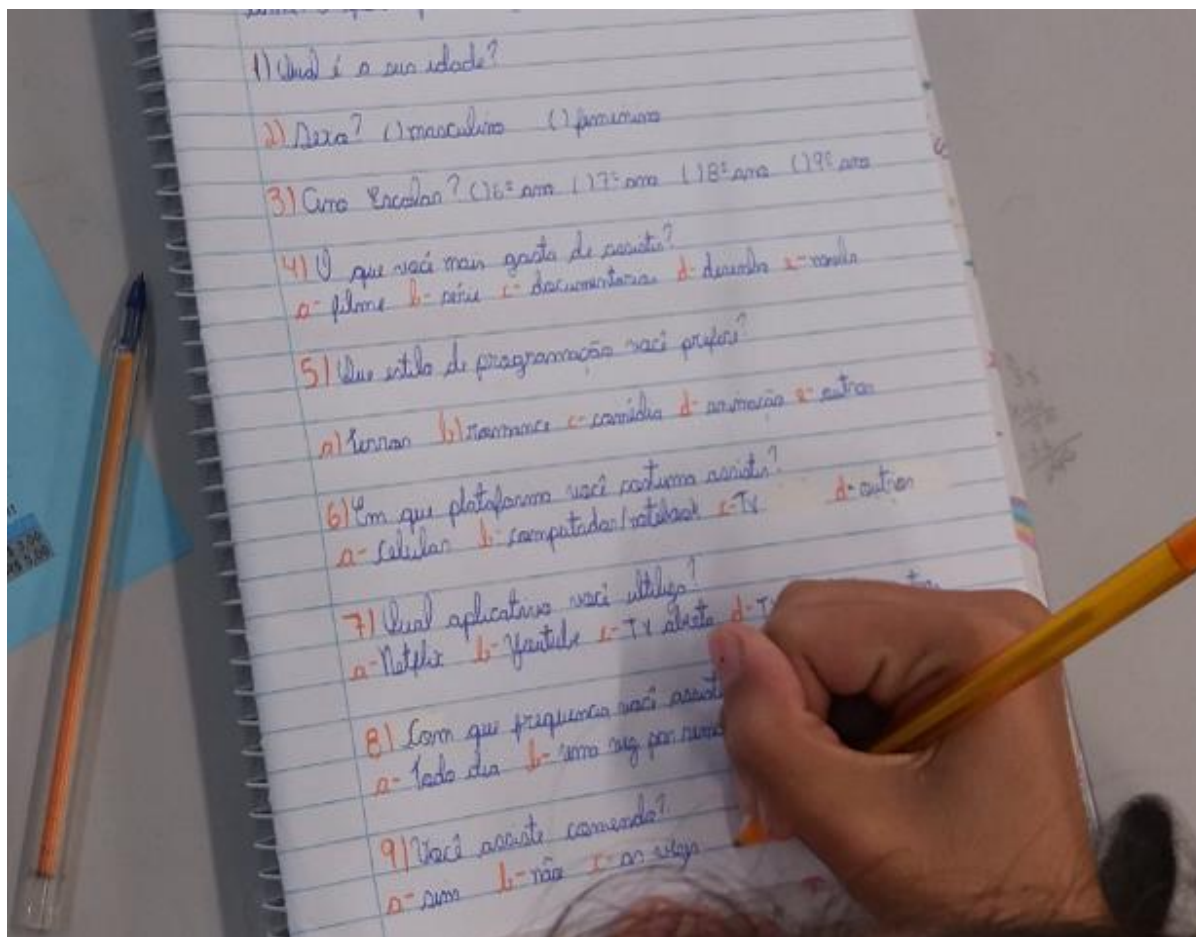 1) Qual é a sua idade?
2) Sexo? () masculino () feminino
3) Ano Escolar? () 6º ano () 7º ano () 8º ano () 9º ano
4) O que você mais gosta de assistir?
a- filme b- série c- documentario d- desenho e- novela
5) Que estilo de programação você prefere?
a) terror b) romance c- comédia d- animação e- outros
6) Em que plataforma você costuma assistir?
a- Celular b- computador/notebook c- TV d- outros
7) Qual aplicativo você utiliza?
a- Netflix b- Youtube c- TV aberta d- TV
8) Com que frequencia você assiste
a- Todo dia b- uma vez por semana
9) Você assiste comendo?
a- sim b- não c- as vezes